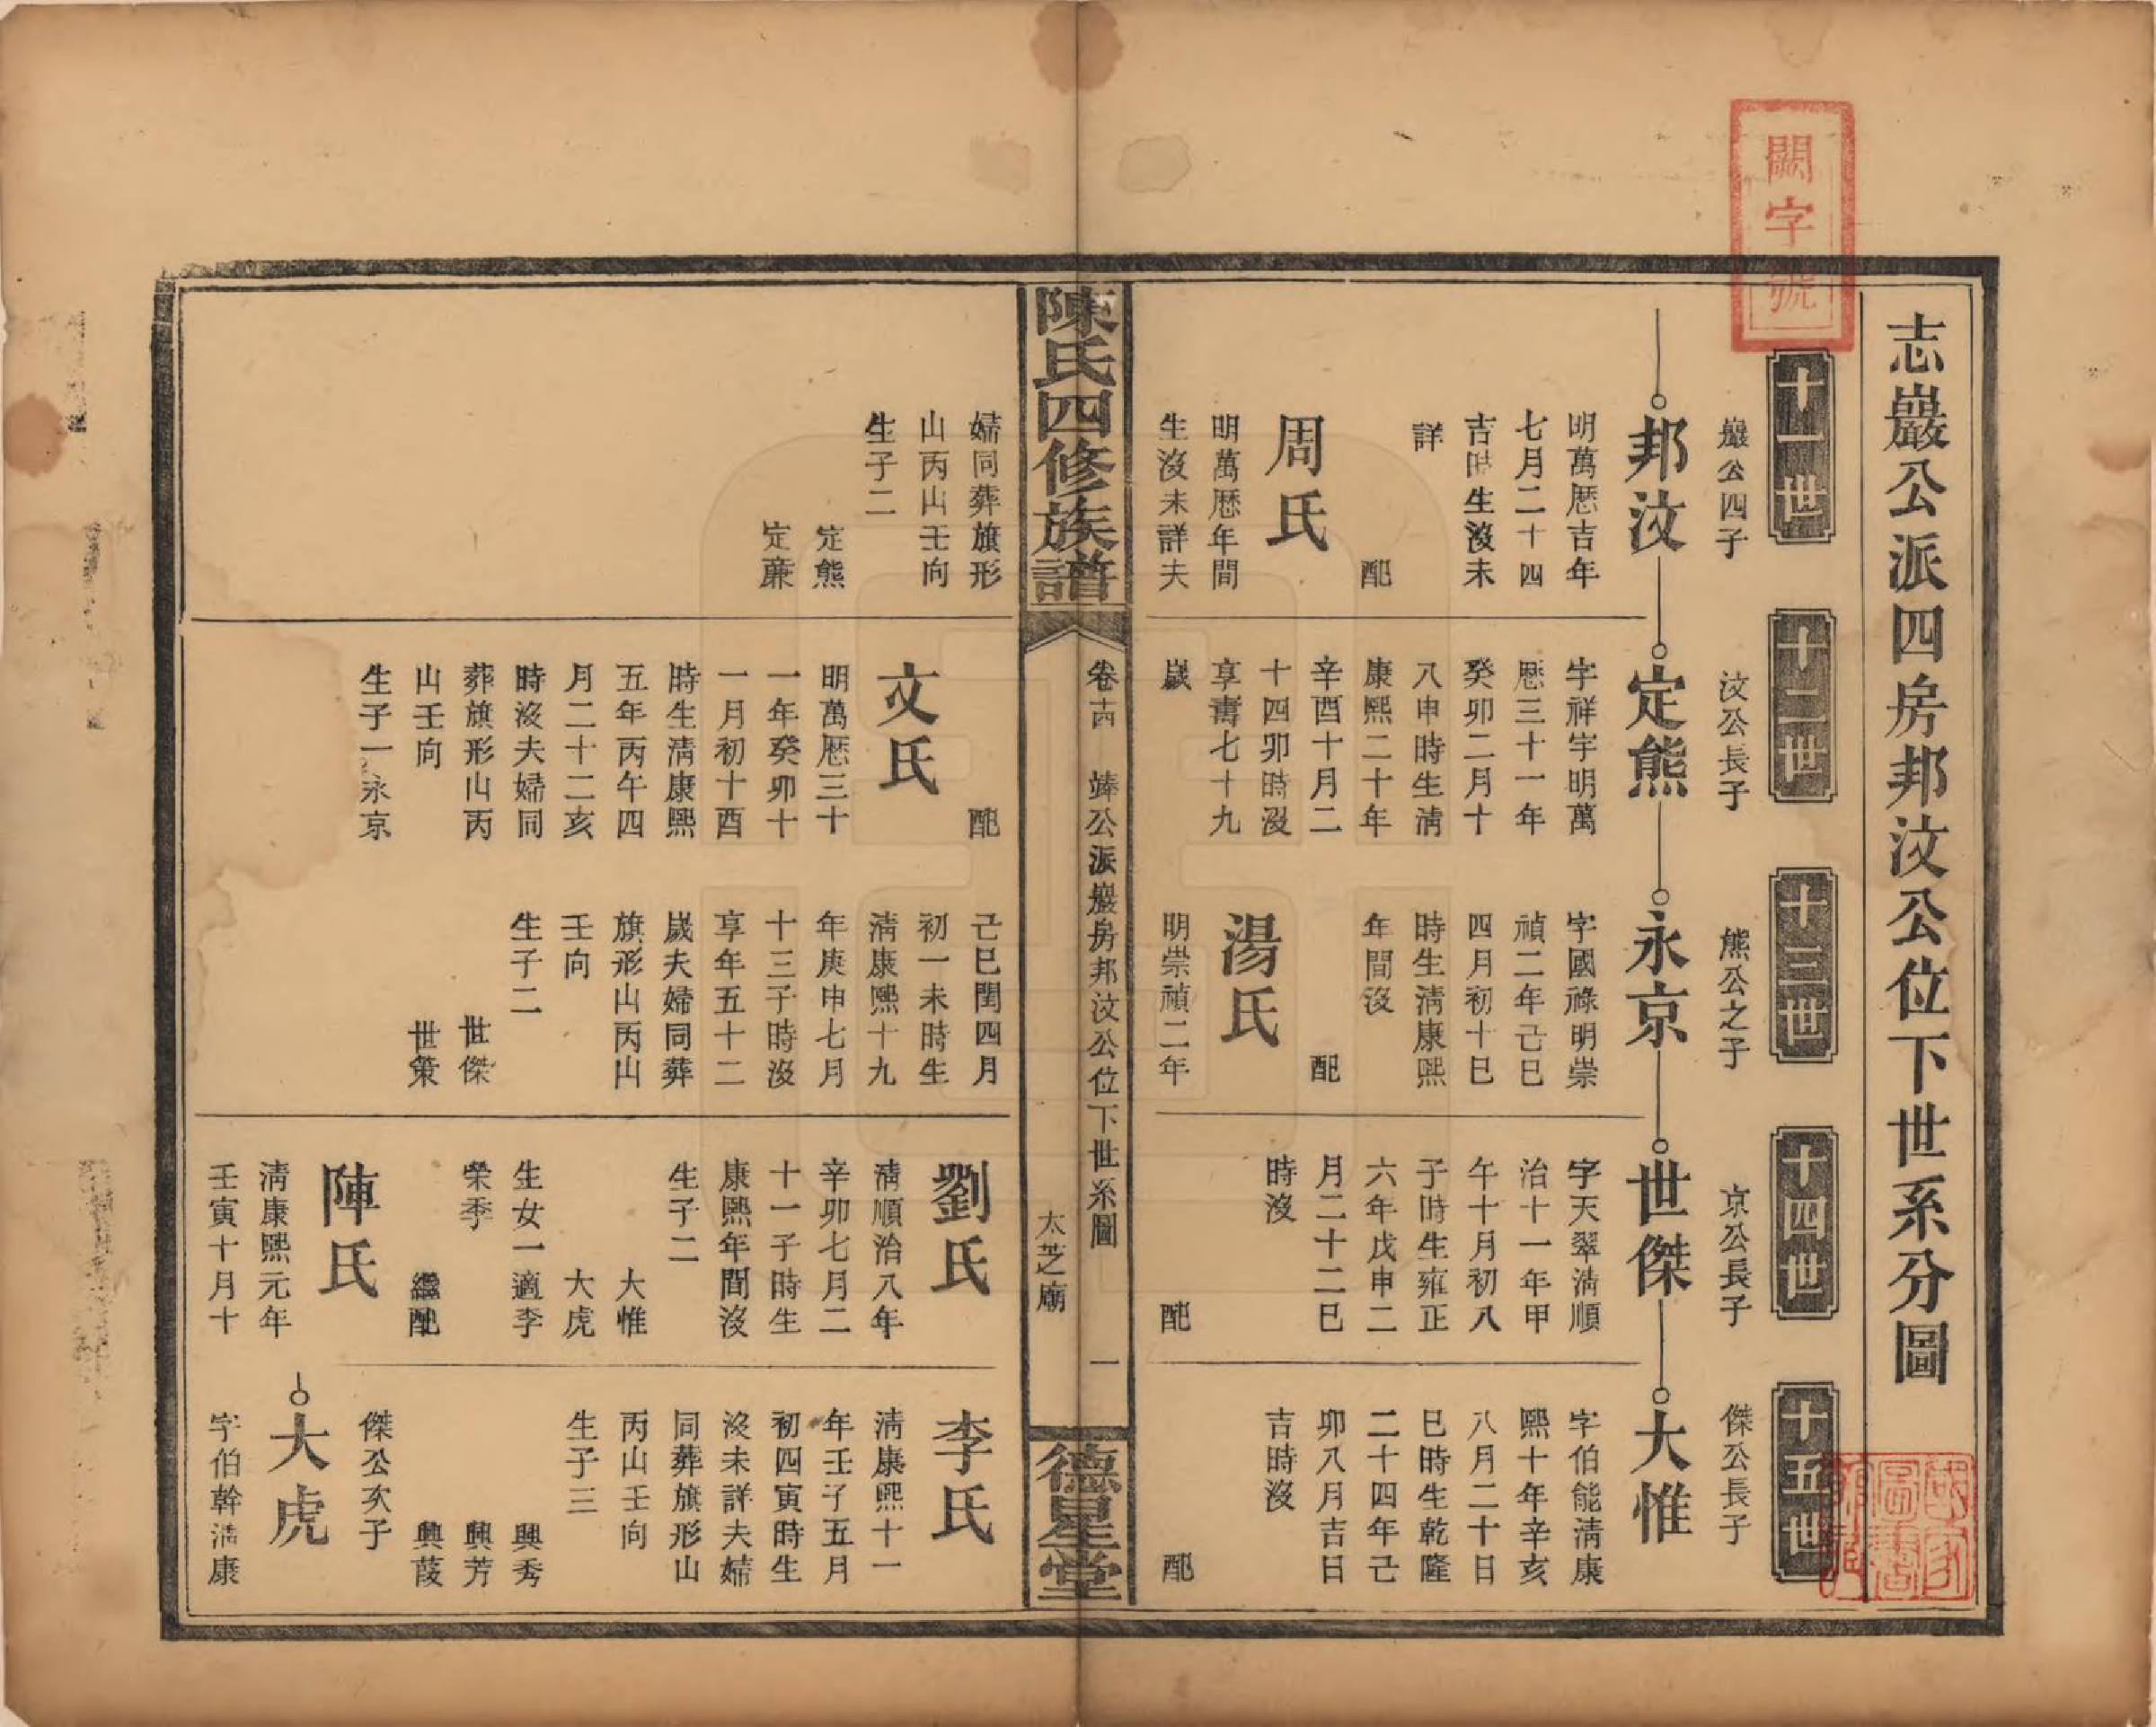 闕字號
志巖公派四房邦汶公位下世系分圖
十一世
十二世
十三世
十四世
十五世
巖公四子
邦汶
明萬厯吉年
七月二十四
吉時生沒未
詳
配
周氏
明萬厯年間
生沒未詳夫
婦同葬旗形
山丙山壬向
生子二
定熊
定蔗
汶公長子
定熊
字祥宇明萬
厯三十一年
癸卯二月十
八申時生淸
康熙二十年
辛酉十月二
十四卯時沒
享壽七十九
歲
配
文氏
明萬厯三十
一年癸卯十
一月初十酉
時生淸康熙
五年丙午四
月二十二亥
時沒夫婦同
葬旗形山丙
山壬向
生子一永京
熊公之子
永京
字國祿明崇
禎二年己巳
四月初十巳
時生淸康熙
年間沒
配
湯氏
明崇禎二年
己巳閏四月
初一未時生
淸康熙十九
年庚申七月
十三子時沒
享年五十二
歲夫婦同葬
旗形山丙山
壬向
生子二
世傑
世策
京公長子
世傑
字天翠淸順
治十一年甲
午十月初八
子時生雍正
六年戊申二
月二十二巳
時沒
配
劉氏
淸順治八年
辛卯七月二
十一子時生
康熙年間沒
生子二
大惟
大虎
生女一適李
榮季
繼配
陳氏
淸康熙元年
壬寅十月十
傑公長子
大惟
字伯能淸康
熙十年辛亥
八月二十日
巳時生乾隆
二十四年己
卯八月吉日
吉時沒
配
李氏
淸康熙十一
年壬子五月
初四寅時生
沒未詳夫婦
同葬旗形山
丙山壬向
生子三
興秀
興芳
興葭
傑公次子
大虎
字伯幹淸康
陳氏四修族譜
卷十四 㷭公派巖房邦汶公位下世系圖
太芝廟
一
德星堂